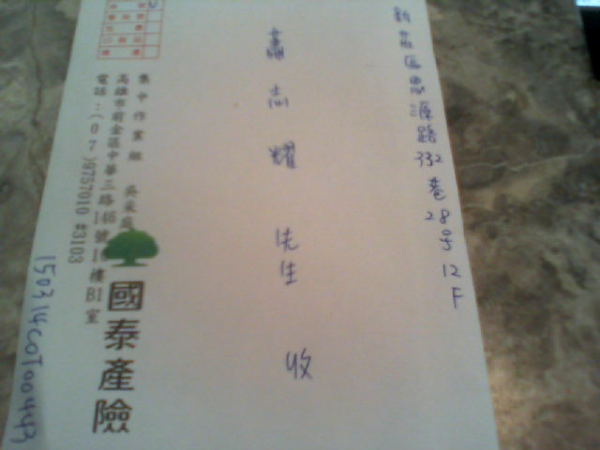 新莊區思源路332巷28号12F
蕭志耀 先生 收
集中作業組 吳采庭
高雄市前金區中華三路146號1樓B1室
電話:(07)9757010 轉3103
國泰產險
150314COT00443